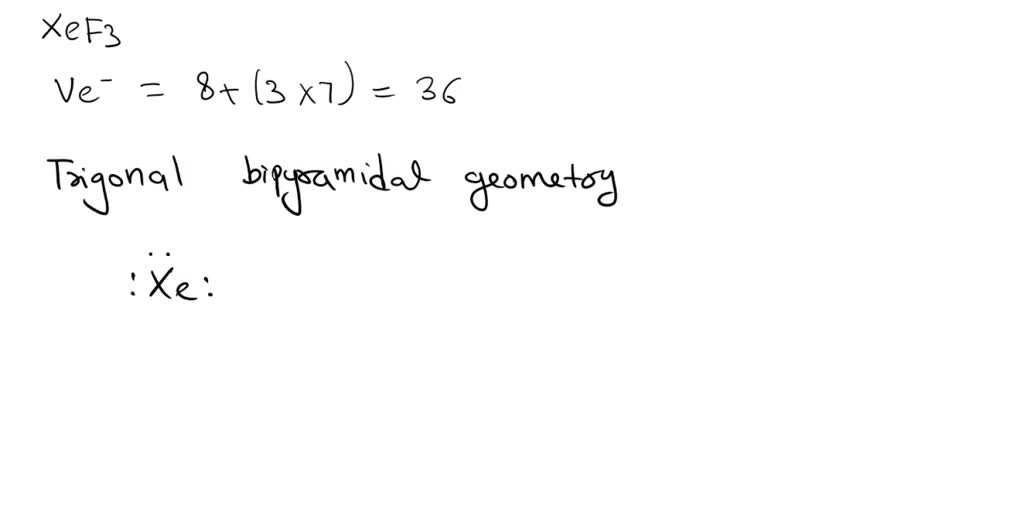 XeF3
Ve⁻ = 8+ (3 x7) = 36
Trigonal bipyramidal geometry
:Ẍe: